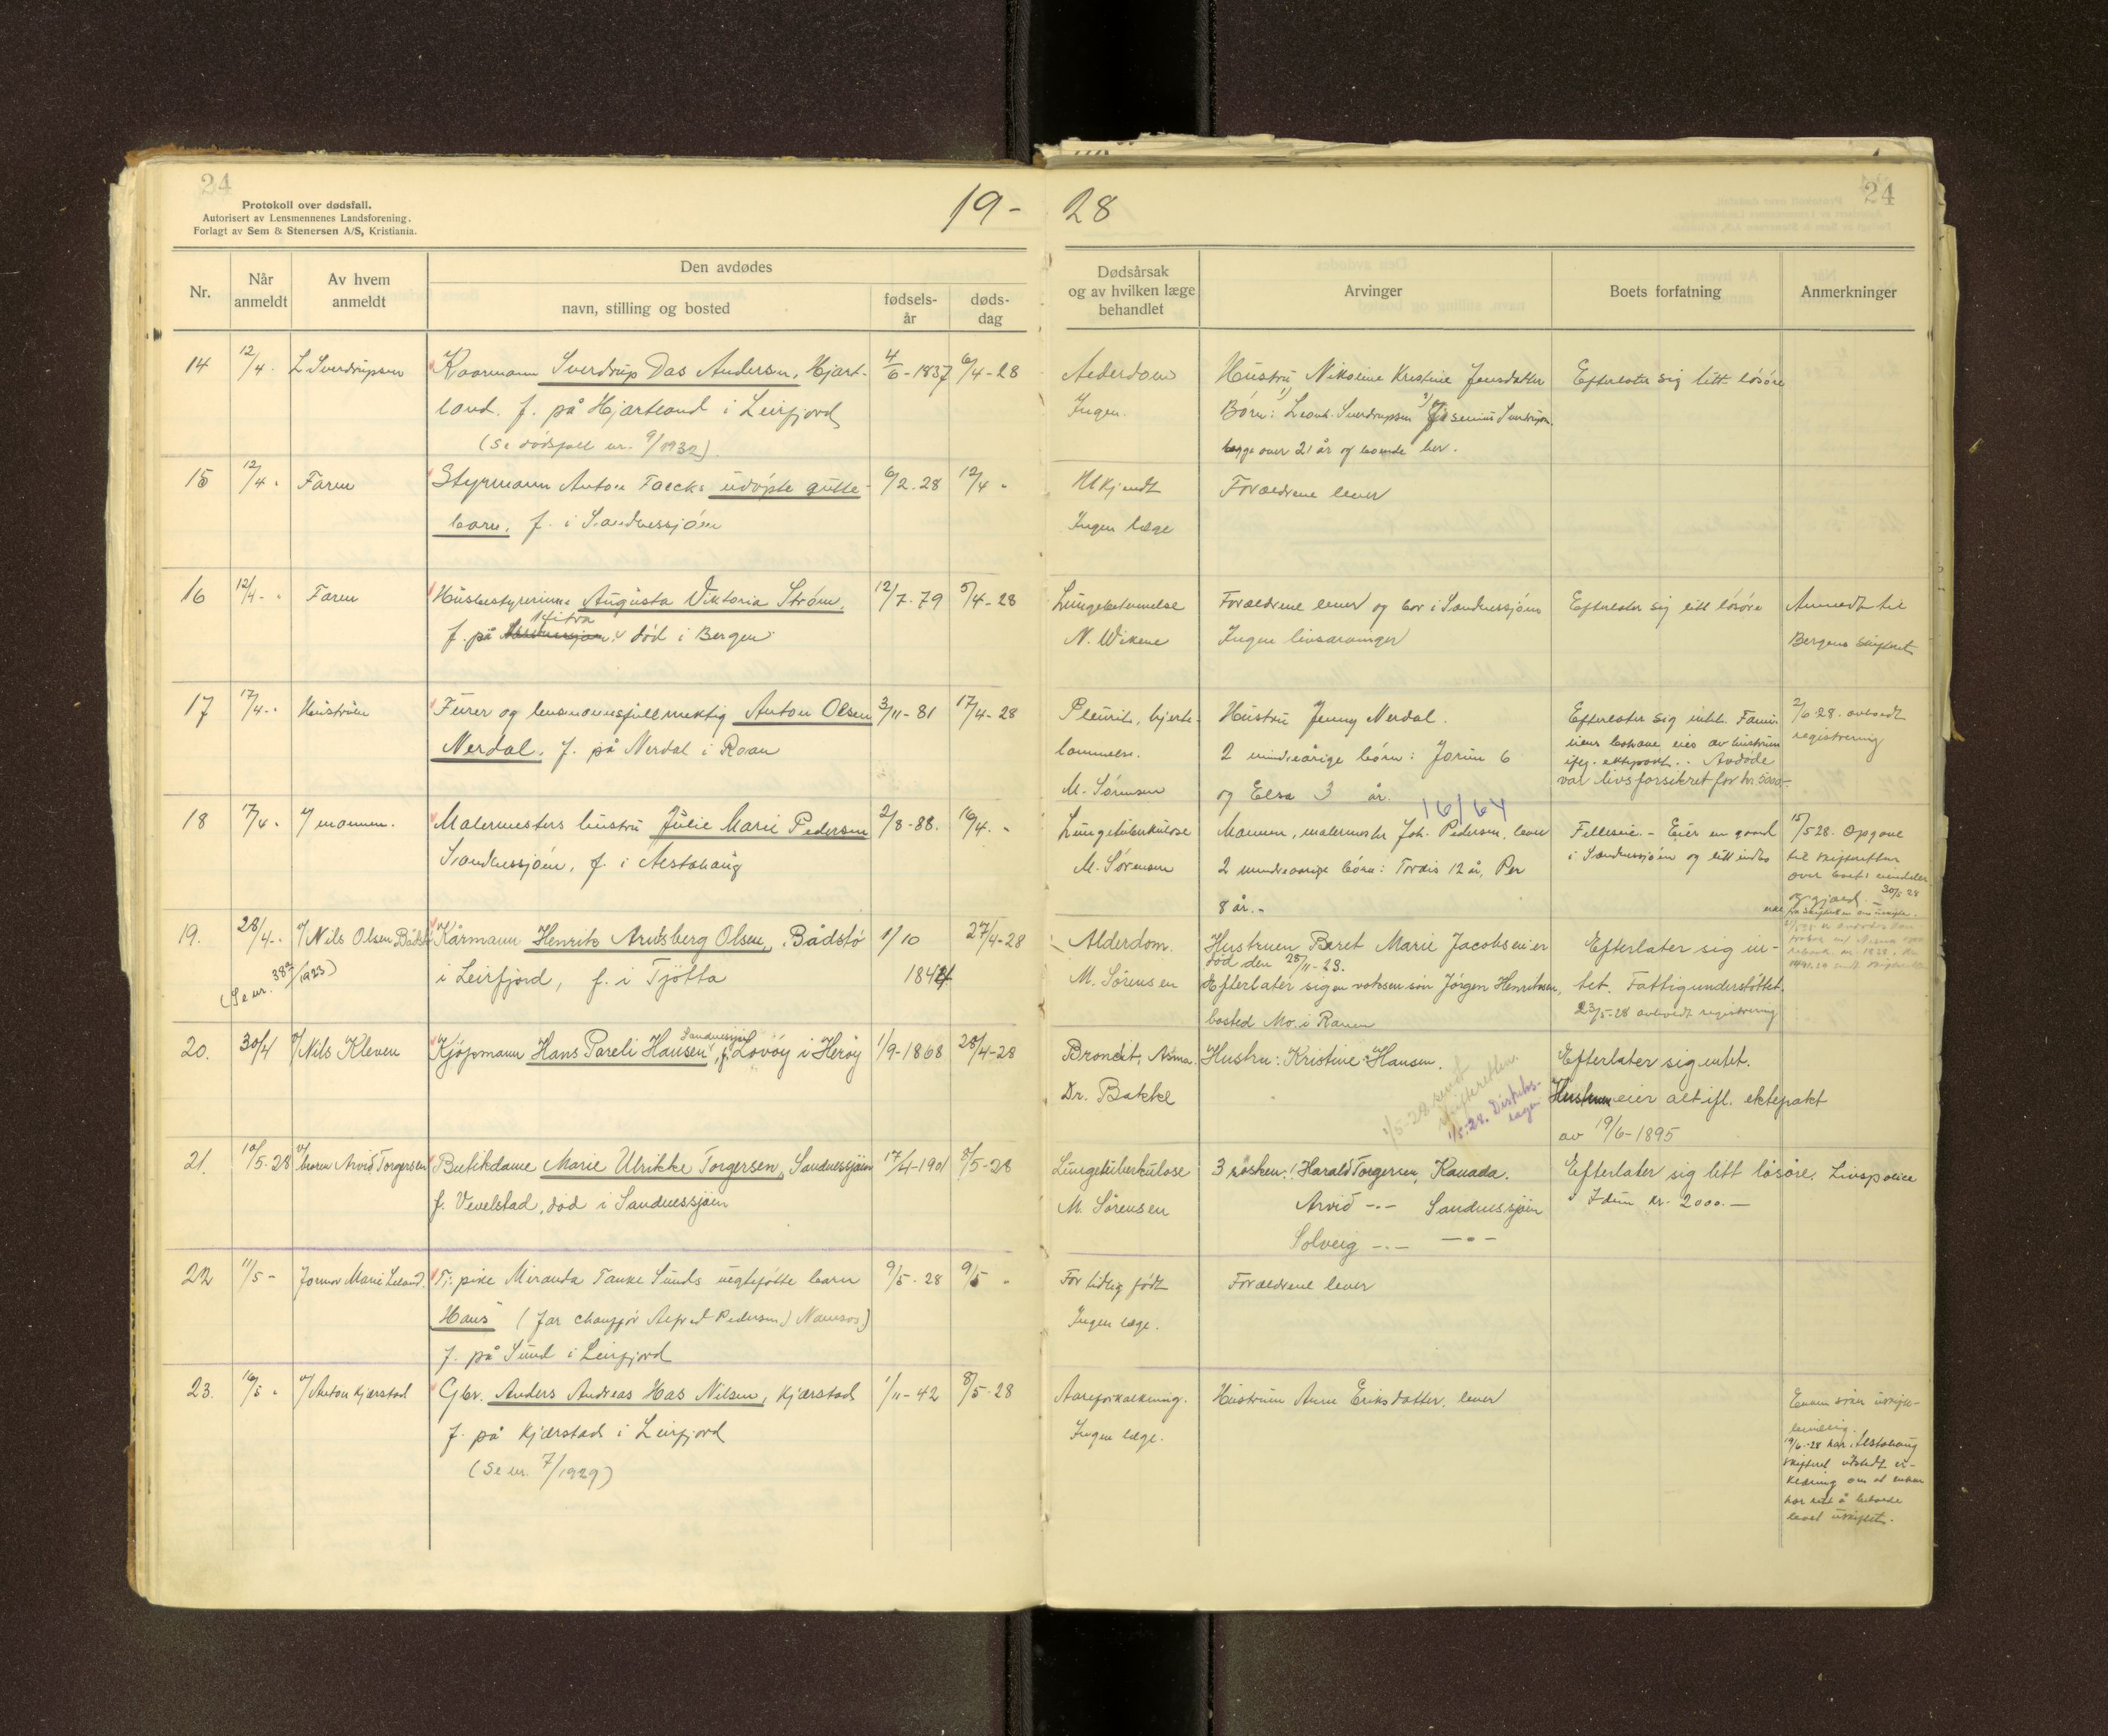 24
Protokoll over dødsfall.
Autorisert av Lensmennenes Landsforening.
Forlagt av Sem & Stenersen A/S, Kristiania.
19- 28
24
Nr.
Når anmeldt
Av hvem anmeldt
Den avdødes
navn, stilling og bosted
fødsels-år
døds-dag
Dødsårsak og av hvilken læge behandlet
Arvinger
Boets forfatning
Anmerkninger
14 12/4. L Sverdrupsen Kaarmann Sverdrup Das Andersen, Hjart- 4/6-1837 6/4-28 Alderdom Hustru Nikoline Kristine Jensdatter Efterlater sig litt løsøre
land. f. på Hjartland i Leirfjord Ingen. Børn: 1) Leonh. Sverdrupsen 2) Sverdrupsen
(Se dødsfall nr. 9/1932) begge over 21 år og boende her.
15 12/4 " Faren Styrmann Anton Falcks udøpte gutte- 6/2.28 12/4 " Ukjendt Foraeldrene lever
barn, f. i Sandnessjøen Ingen læge
16 12/4- " Faren Husbestyrerinne Augusta Viktoria Strøm, 12/7-79 5/4-28 Lungebetennelse Foraeldrene lever og bor i Sandnessjøen Efterlater sig litt løsøre Anmeldt til
f. på Hitra død i Bergen N. Wikene Ingen livsarvinger Bergens skifteret
17 17/4- " Hustruen Furer og lensmannsfullmektig Anton Olsen 3/11-81 17/4-28 Pleurit, hjerte- Hustru Jenny Nerdal. Efterlater sig intet. Fami- 2/6-28. avholdt
Nerdal, f. på Nerdal i Roan lammelse. 2 mindreårige børn: Jorun 6 liens bohave eies av hustruen registrering
M. Sørensen og Elsa 3 år. iflg. ektepakt. Avdøde
var livsforsikret for kr. 5000.-
16/64
18 17/4 " v/ mannen. Malermesters hustru Julie Marie Pedersen 2/8-88. 16/4. - Lungetuberkulose Mannen, malermester Joh. Pedersen, lever Felleseie.- Eier en gaard 15/5 28. Opgave
Sandnessjøen, f. i Alstahaug M. Sørensen 2 mindreaarige børn: Tordis 12 år, Per i Sandnessjøen og litt indbo til skifteretten
8 år.- over boets eiendeler
30/5 28
19. 28/4- " v/ Nils Olsen Bådstø Kårmann Henrik Arnsberg Olsen, Bådstø 1/10 27/4-28 Alderdom. Hustruen Beret Marie Jacobsen er Efterlater sig in-
død den 25/11-23.
(Se nr. 38/1923) i Leirfjord, f. i Tjøtta 1844 M. Sørensen Efterlater sig en voksen søn Jörgen Henriksen, tet. Fattigunderstøttet.
bosted Mo i Ranen 23/5-28 avholdt registrering
20. 30/4 v/ Nils Kleven Kjøpmann Hans Pareli Hansen, Sandnessjøen f. Lovöy i Heröy 1/9-1868 28/4-28 Bronchit, Asma. Hustru: Kristine Hansen. Efterlater sig intet.
Dr. Bakke Hustruen eier alt ifl. ektepakt
av 19/6-1895
1/5-28 sendt skifteretten.
21. 10/5-28 v/ broren Arvid Torgersen Butikdame Marie Ulrikke Torgersen, Sandnessjøen 17/4-1901 8/5-28 Lungetuberkulose 3 søsken: Harald Torgersen, Kanada. Efterlater sig litt løsøre. Livspolice
f. Vevelstad, død i Sandnessjøen M. Sørensen Arvid -"- Sandnessjøen Idun kr. 2000.-
Solveig -"- -"-
22 11/5- Jormor Marie Leland. Tj. pike Miranda Tanke Sunds uegtefødte barn 9/5-28 9/5 " For tidlig født Foraeldrene lever
"Hans" (far chauffør Alfred Pedersen, Namsos) Ingen læge.
f. på Sund i Leirfjord
23. 16/5 " v/ Anton Kjærstad Gbr. Anders Andreas Has Nilsen, Kjærstad 1/11-42 8/5-28 Aareforkalkning. Hustruen Anne Eriksdatter, lever Enken søker uskifte-
f. på Kjærstad i Leirfjord Ingen læge. bevilling.
(Se nr. 7/1929) 19/6-28 har Alstahaug
skifteret utstedt er-
klæring om at enken
har rett å beholde
boet uskiftet.